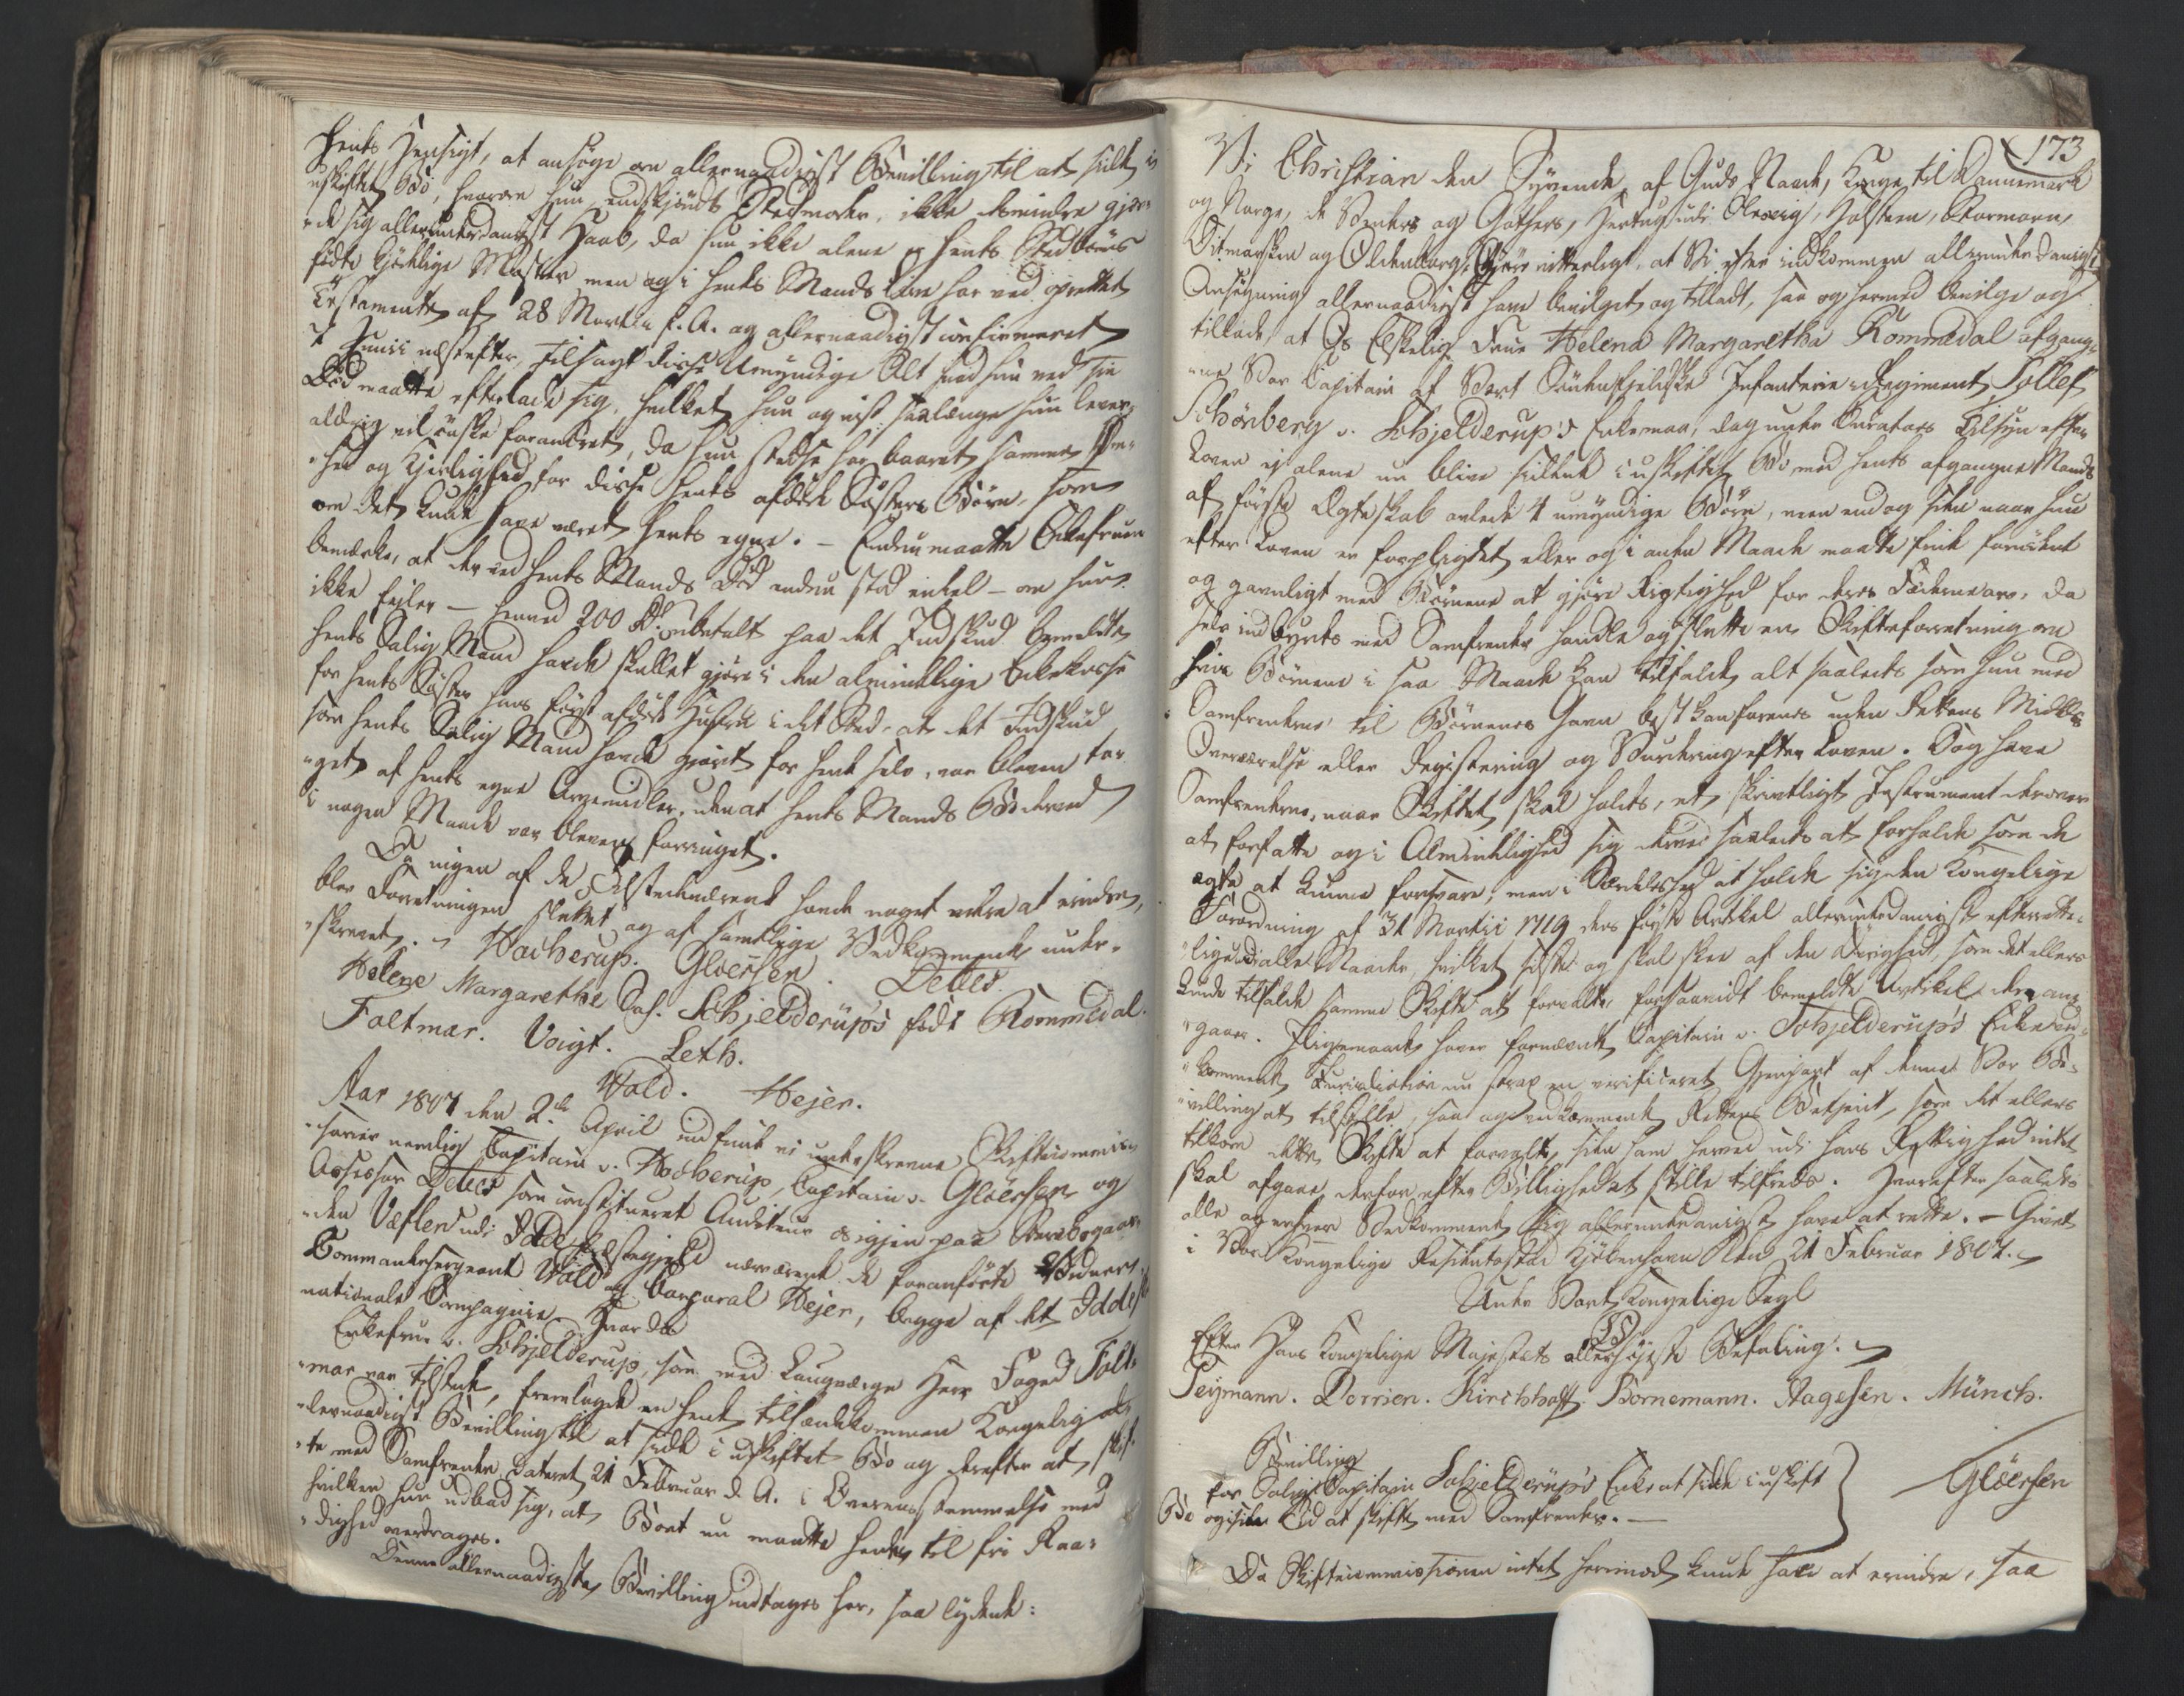 hends Hensigt, at ansøge om allernaadigst Bevilling til at sidde i
uskiftet Bo, hvorom hun, endskjøndt Stedmoder, ikke desmindre gjør-
de sig allerunderdanigst Haab, da hun ikke alene er hends Stedbørns
kjødelige Moster men og i hends Mands Live har ved oprettet
Testamente af 28 Martii f. A. og allernaadigst confirmeret
Junii næstefter, tilsagt disse Umyndige Alt hvad hun ved sin
Død maatte efterlade sig, hvilket hun og vist saalænge hun lever,
aldrig vil ønske forandret, da hun stedse har baaret samme Øm-
hed og Kjerlighed for disse hends afdøde Søsters Børn, som
om det kunde have været hends egne. - Endnu maatte Enkefruen
bemærke, at der ved hends Mands Død endnu stod enkel - om hun
ikke fejler - henved 200 Rd. ubetalt paa det Indskud bemeldte
hends Salig Mand havde skullet gjøre i den almindelige Enkekasse
for hends Søster hans først afdøde Hustru i det Sted, at det Indskud
som hends Salig Mand havde gjort for hende selv, var bleven ta-
get af hends egne Arvemidler, uden at hends Mands Bo derved
i nogen Maade var bleven forringet.
Da ingen af de Tilstedeværende havde noget videre at erindre,
blev Forretningen sluttet og af samtlige Vedkommende under-
skrevet.
Hocherup. Gloersen. Detles.
Helene Margarethe Sal. Schjelderup's født Rommedal.
Foltmar. Voigt. Leth.
Wold. Hejer.
Aar 1807 den 2de April indfandt vi underskrevne Skiftecommis-
sarier nemlig Capitain v. Hocherup, Capitain v. Gloersen og
Assessor Detles som constitueret Auditeur os igjen paa
den Væflen udi Idde Præstegjeld nærværende de foranførte Vidner
Commandersergeant Wold og Corporal Hejer, begge af det Iddeske
nationale Compagnie Hvor da
Enkefrue v. Schjelderup, som med Laugværge Herr Foged Folt-
mar var tilstede, fremlagde en hende tilhændekommen Kongelig al-
lernaadigst Bevilling til at sidde i uskiftet Bo og derefter at skif-
te med Samfrender, dateret 21 Februar d. A. i Overensstemmelse med
hvilken hun udbad sig, at Boet nu maatte hende til fri Raa-
dighed overdrages.
Denne allernaadigste Bevilling indtages her, saa lydende:
173
Vi Christian den Syvende, af Guds Naade, Konge til Dannemark
og Norge, de Venders og Gothers, Hertug udi Slesvig, Holsteen, Stormarn,
Ditmarsken og Oldenborg, Gjøre vitterligt, at Vi efter indkommen allerunderdanigst
Ansøgning allernaadigst have bevilget og tilladt, saa og hermed bevilge og
tillade, at Os Elskelig Frue Helena Margaretha Rommedal afgang-
ne Vor Capitain af Vort Søndenfjeldske Infanterie-Regiment Tollef
Schönberg v. Schjelderup's Enke maa, dog under Curators Tilsyn efter
Loven ej alene nu blive siddende i uskiftet Bo med hends afgangne Mands
af første Ægteskab avlede 4 umyndige Børn, men endog siden naar hun
efter Loven er forpligtet eller og i anden Maade maatte finde fornødent
og gavnligt med Børnene at gjøre Rigtighed for deres Fædrene arv, da
selv indbyrds med Samfrender handle og slutte en Skifteforretning om
hvis Børnene i saa Maade kan tilfalde, alt saaledes som hun med
Samfrenderne til Børnenes Gavn best kan forenes uden Rettens Middels
Overværelse eller Registering og Vurdering efter Loven. Dog have
Samfrenderne, naar Skiftet skal holdes, et skriftligt Instrument derover
at forfatte og i Almindelighed sig derved saaledes at forholde som de
agte at kunne forsvare, men i Særdeleshed at holde sig den Kongelige
Forordning af 31 Martii 1719 dens første Artikel allerunderdanigst efterrette-
lig udi alle Maader, hvilket sidste og skal skee af den Øvrighed, som det ellers
kunde tilfalde samme Skifte at forrette, forsaavidt bemeldte Artikel den an-
gaaer. Iligemaade haver fornævnte Capitain v. Schjelderup's Enke ved-
kommende Jurisdiction nu strax en verificeret Gjenpart af denne Vor Be-
villing at tilstille, saa og vedkommende Rettens Betjent, som det ellers
tilkom dette Skifte at forvalte, siden ham herved udi hans Rettighed intet
skal afgaae, derfor efter Billighed at stille tilfreds. Hvorefter saaledes
alle og enhver Vedkommende sig allerunderdanigst have at rette. - Givet
i Vor Kongelige Residentsstad Kjøbenhavn den 21 Februar 1807.
Under Vort Kongelige Segl
LS
Efter Hans Kongelige Majestæts allerhøjeste Befaling.
Feymann. Dorrien. Kirchhoff. Bornemann. Aagesen. Münch.
Bevilling
for Salig Capitain Schjelderup's Enke at sidde i uskift
Bo og siden Tid at skifte med Samfrender. -
Gloersen
Da Skiftecommissionen intet herimod kunde have at erindre, saa